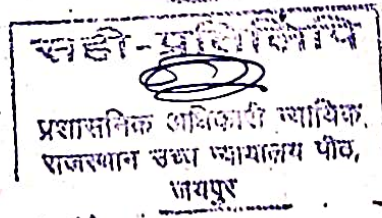 सही-प्रतिलिपि
प्रशासनिक अधिकारी न्यायिक,
राजस्थान उच्च न्यायालय पीठ,
जयपुर